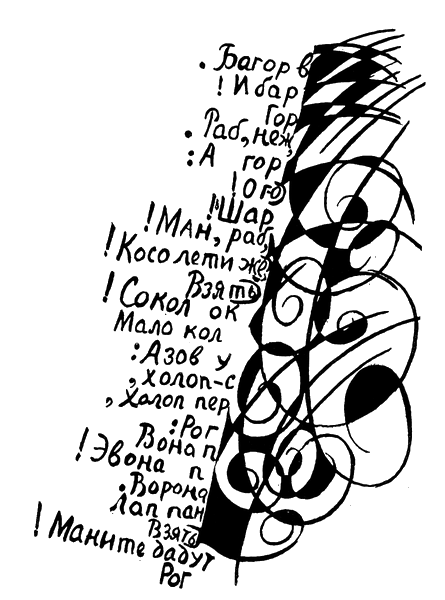 . Багор в
! И бар
Гор
. Раб, неж
: А гор
! Ого
! Шар
! Ман, раб,
! Косо лети же
Взять
! Сокол ок
Мало кол
: Азов у
, холоп-с
, Халоп пер
: Рог
Вона п
! Эвона п
. Ворона
Лап пан
Взять
! Маните дадут
Рог